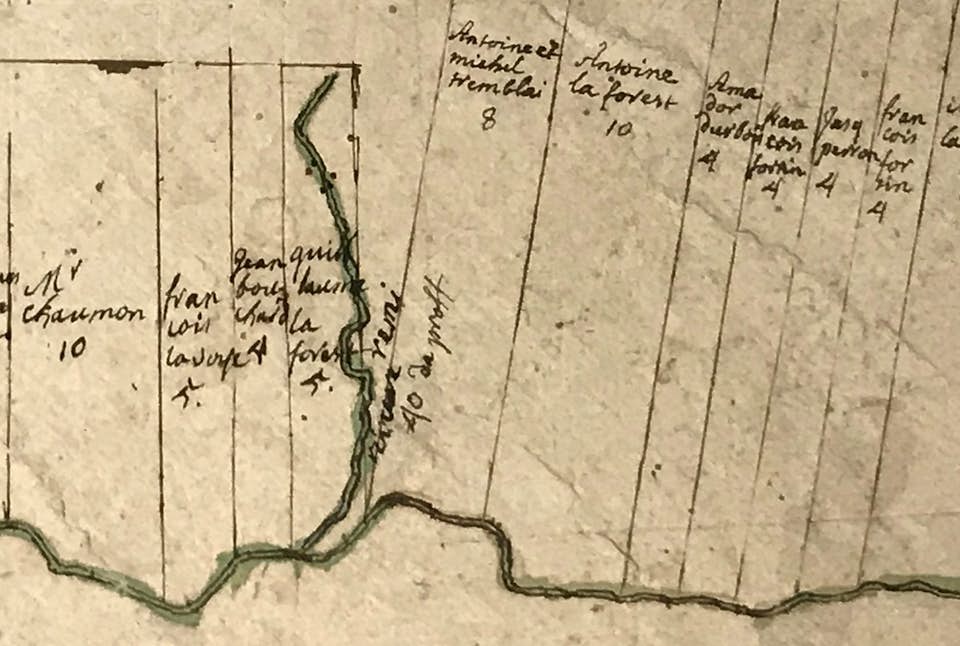 Mr
chaumon
10
fran
cois
lavoye
5.
Jean
bou
chard
4
guil
laume
la
forest
5.
riviere remi
40 da
Antoine et
michel
tremblai
8
Antoine
la forest
10
Ama
dor
4
fran
cois
fortin
4
Jasq
perron
4
fran
cois
for
tin
4
la